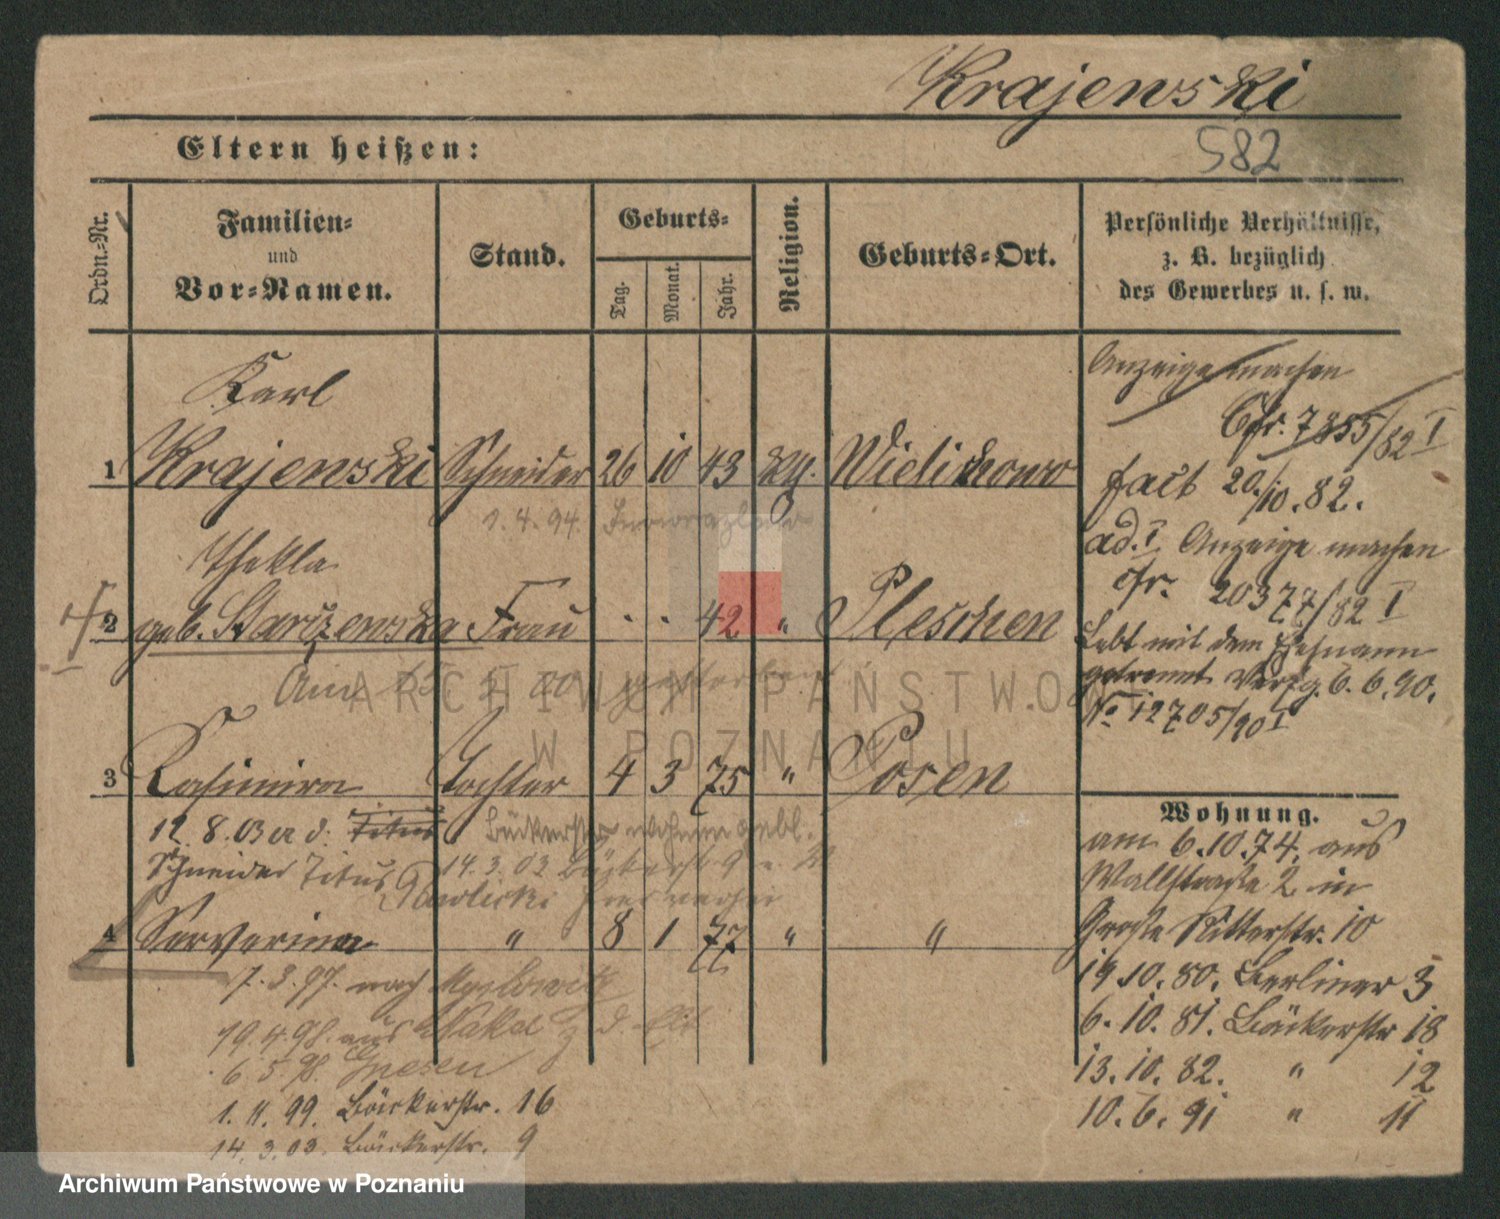 Krajewski
582
Eltern heißen:
Ordn.-Nr.
Familien-
und
Vor-Namen.
Stand.
Geburts-
Tag.
Monat.
Jahr.
Religion.
Geburts-Ort.
Persönliche Verhältnisse,
z. B. bezüglich
des Gewerbes u. s. w.
Karl
1 Krajewski Schneider 26 10 43 Wielichowo
1. 4. 94. Inowrazlaw
Thekla
2 geb. Starczewska Frau . . 42 " Pleschen
Am gestorben
3 Kasimira Tochter 4 3 75 " Posen
12. 8. 03 Titus Bäckerstr.
Schneider Titus 14. 3. 03 Bäckerstr. 9
4 Serverina " 8 1 77 " "
7. 3. 97. nach Myslowitz
19. 4. 98. aus Nakel
6. 5. 98. Gnesen
1. 11. 99. Bäckerstr. 16
14. 3. 03. Bäckerstr. 9
Anzeige machen
Cfr. 7355/82 I
fait 20./10. 82.
ad. I Anzeige machen
cfr. 20377/82 I
Lebt mit dem Ehemann
getrennt Verfg. 6. 6. 90.
No 12705/90 I
Wohnung.
am 6. 10. 74. aus
Wallstraße 2 in
Große Ritterstr. 10
19 10. 80. Berliner 3
6. 10. 81. Bäckerstr 18
13. 10. 82. " 12
10. 6. 91 " 11
ARCHIWUM PAŃSTWOW
W POZNANIU
Archiwum Państwowe w Poznaniu